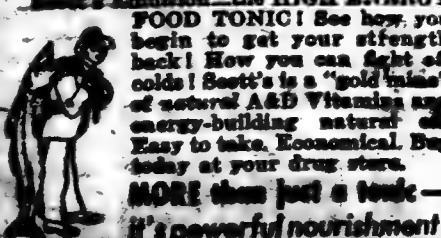 HIGH ENERGY
FOOD TONIC! See how you
begin to get your strength
back! How you can fight of
colds! Scott's is a "gold mine"
of natural A&D Vitamins an
energy-building natural oi
Easy to take. Economical. Bu
today at your drug store.
MORE than just a tonic—
it's powerful nourishment